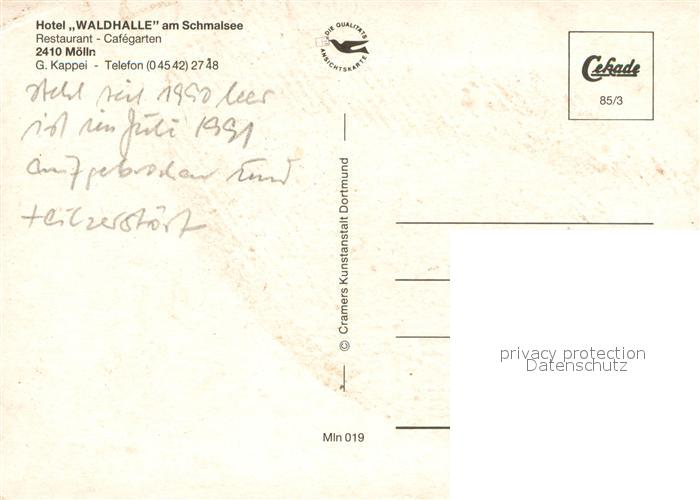 Hotel „WALDHALLE” am Schmalsee
Restaurant - Cafégarten
2410 Mölln
G. Kappei - Telefon (0 45 42) 27 48
steht seit 1990 leer
ist im Juli 1991
aufgebrochen und
teilzerstört
DIE QUALITÄTS
ANSICHTSKARTE
Cekade
85/3
© Cramers Kunstanstalt Dortmund
Mln 019
privacy protection
Datenschutz